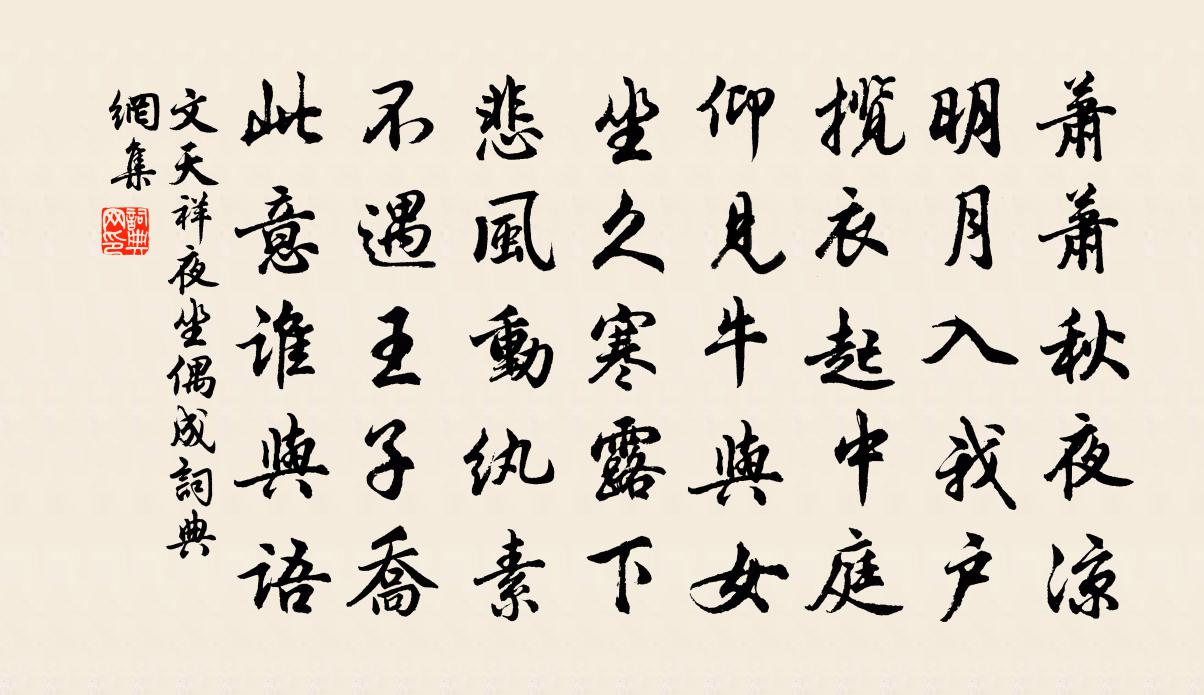 蕭蕭秋夜涼
明月入我户
攬衣起中庭
仰見牛與女
坐久寒露下
悲風動紈素
不遇王子喬
此意誰與語
文天祥夜坐偶成詞典
網集
詞典
网印